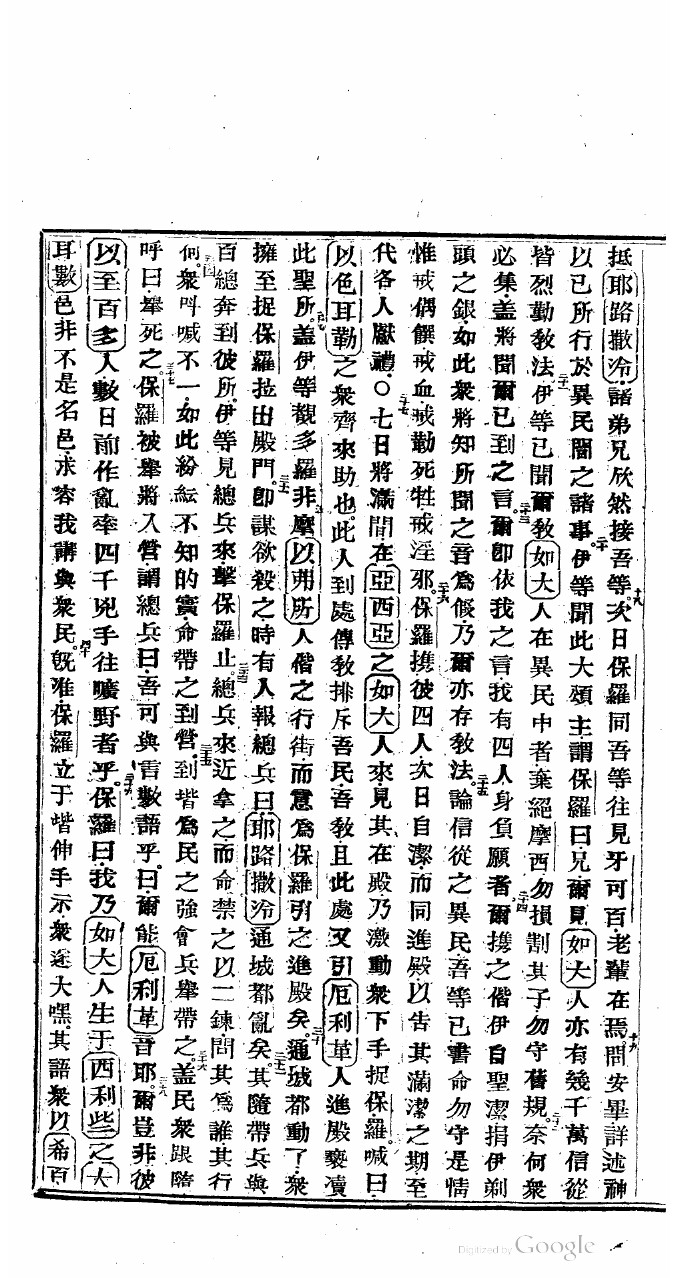 抵耶路撒冷諸弟兄欣然接吾等次日保羅同吾等往見牙可百老輩在焉問安畢詳述神
以己所行於異民間之諸事伊等聞此大頌主謂保羅曰兄爾見如大人亦有幾千萬信從
皆烈勤教法伊等已聞爾教如大人在異民中者棄絕摩西勿損割其子勿守舊規奈何衆
必集盖將聞爾已到之言爾卽依我之言我有四人身負願者爾攜之偕伊自聖潔捐伊剃
頭之銀如此衆將知所聞之音爲假乃爾亦存教法論信從之異民吾等已書命勿守是情
惟戒偶饌戒血戒勒死牲戒淫邪保羅攜彼四人次日自潔而同進殿以告其滿潔之期至
代各人獻禮○七日將滿間在亞西亞之如大人來見其在殿乃激動衆下手捉保羅喊曰
以色耳勒之衆齊來助也此人到處傳教排斥吾民吾教且此處又引厄利革人進殿褻瀆
此聖所盖伊等覩多羅非摩以弗所人偕之行街而意爲保羅引之進殿矣通城都動了衆
擁至捉保羅拉出殿門卽謀欲殺之時有人報總兵曰耶路撒冷通城都亂矣其隨帶兵與
百總奔到彼所伊等見總兵來擊保羅止總兵來近拿之而命禁之以二鍊問其爲誰其行
何衆呌喊不一如此紛紜不知的實命帶之到營到堦爲民之強會兵舉帶之盖民衆跟隨
呼曰舉死之保羅被舉將入營謂總兵曰吾可與言數語乎曰爾能厄利革音耶爾豈非彼
以至百多人數日前作亂率四千兇手往曠野者乎保羅曰我乃如大人生于西利些之大
耳數邑非不是名邑求容我講與衆民旣准保羅立于堦伸手示衆遂大嘿其語衆以希百
Digitized by Google